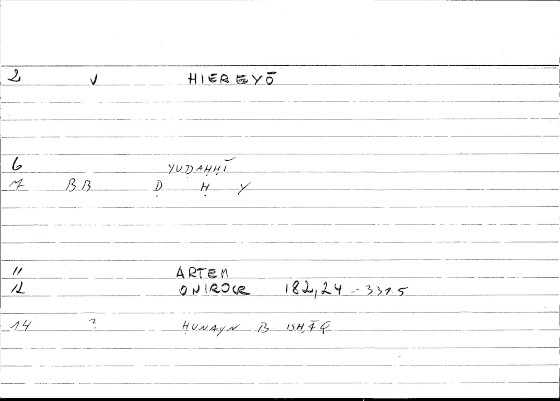 2 v HIEREYŌ
6 YUḌAḤḤĪ
7 BB Ḍ Ḥ Y
11 ARTEM
12 ONIROCR 182,24-331.5
14 ? ḤUNAYN B ISḤĀQ